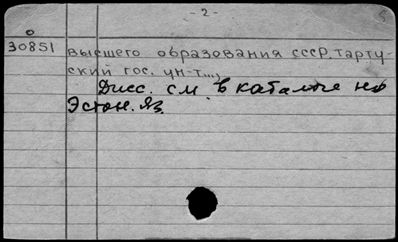 - 2 -
30851
высшего образования СССР. Тарту-
ский гос. ун-т...,
Дисс. см в каталоге на
Эстон. яз.